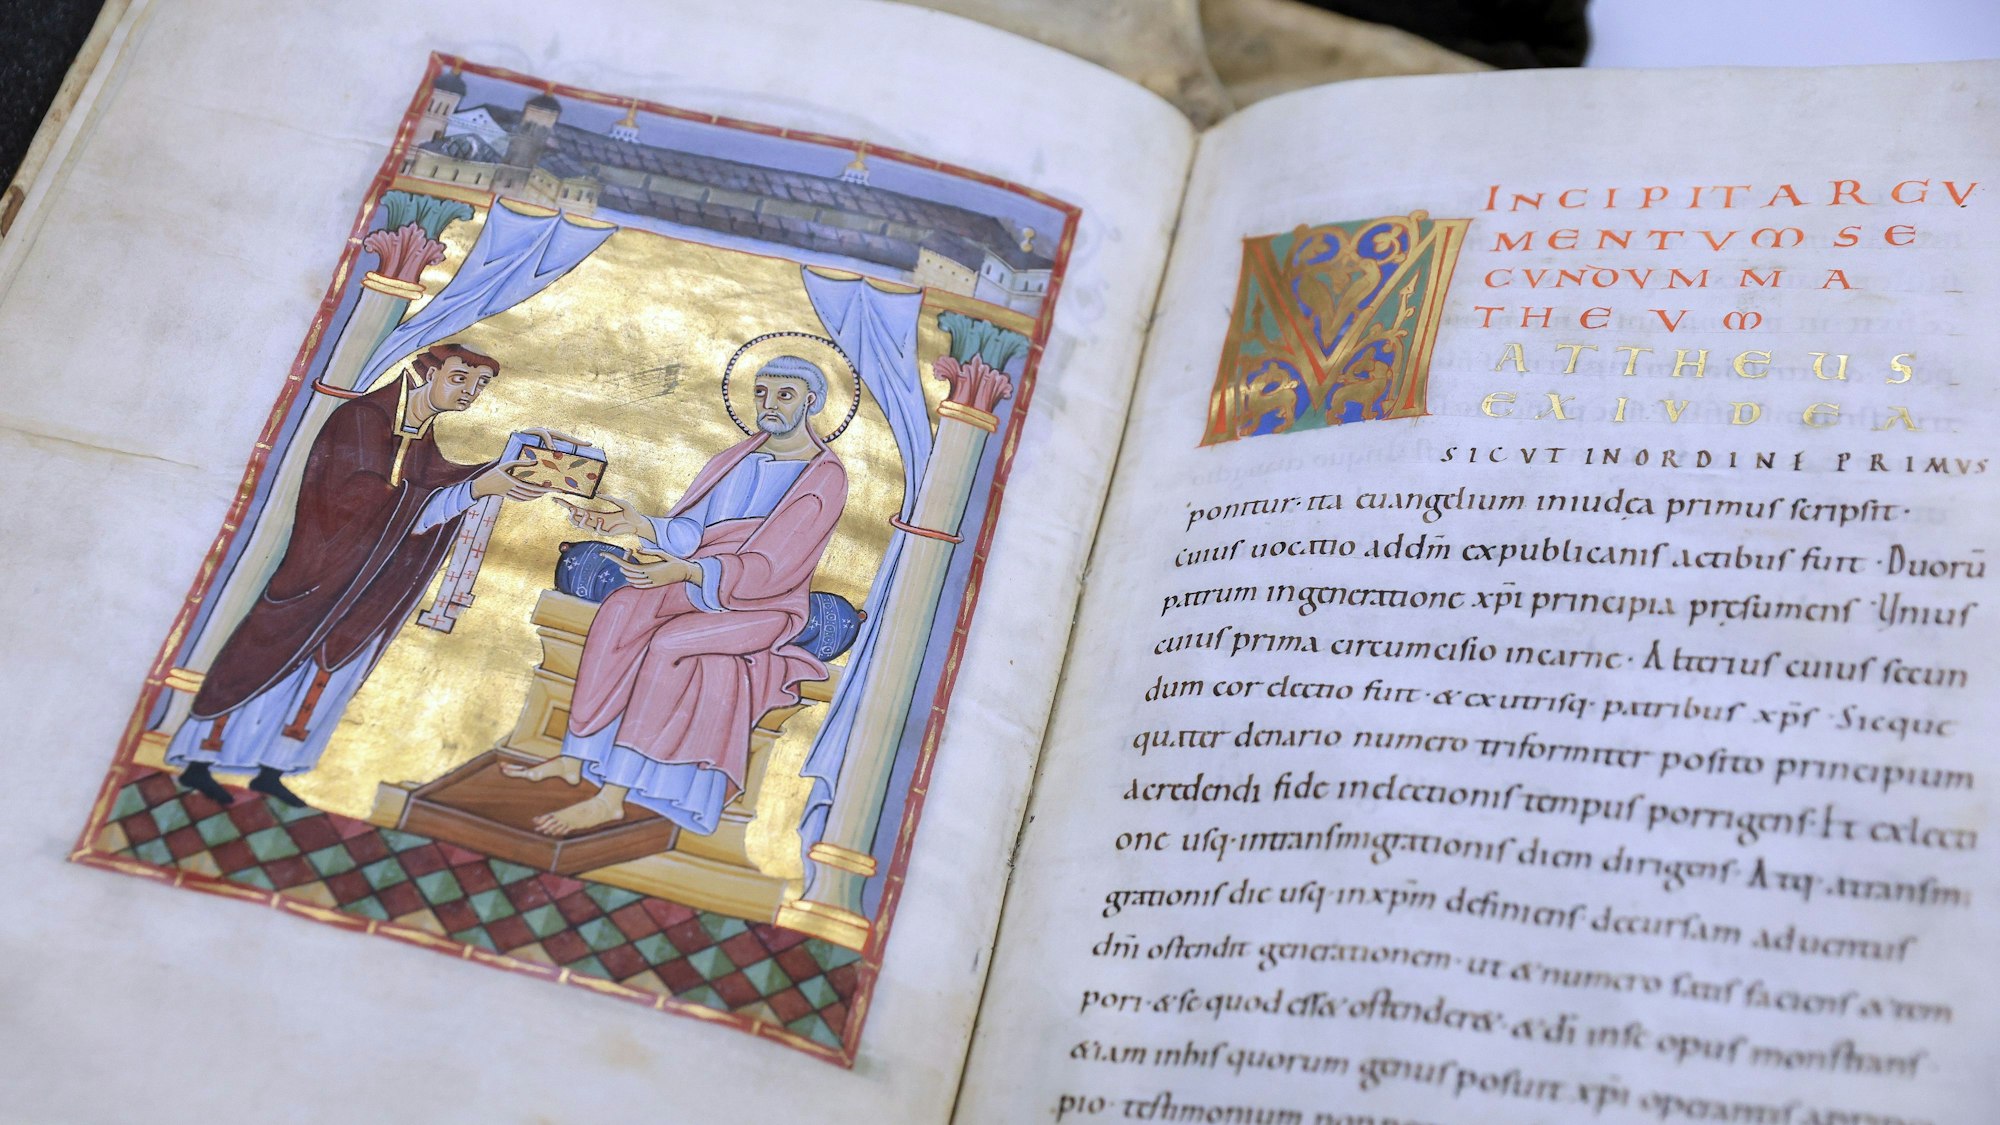 INCIPIT ARGV
MENTVM SE
CVNDVM MA
THEVM
MATTHEUS
EX IVDEA
SICVT IN ORDINE PRIMVS
ponitur· ita euangelium iniudęa primus scripsit·
cuius uocatio addm̄ expublicanis actibus fuit· Duorū
patrum ingeneratione xp̄i principia pręsumens· Unius
cuius prima circumcisio incarne· Alterius cuius secun
dum cor electio fuit· & exutrisq· patribus xp̄s· Sicque
quater denario numero triformiter posito principium
acredendi fide inelectionis tempus porrigens· Et exelecti
one usq· intransmigrationis diem dirigens· Atq· atransmi
grationis die usq· inxp̄m definiens· decursam aduentus
dn̄i ostendit generationem· ut & numero satis faciens & tem
pori· & se quod ess& ostender&· & dī inse opus monstrans
&iam inhis quorum genus posuit xp̄i operantis
pio· testimonium non